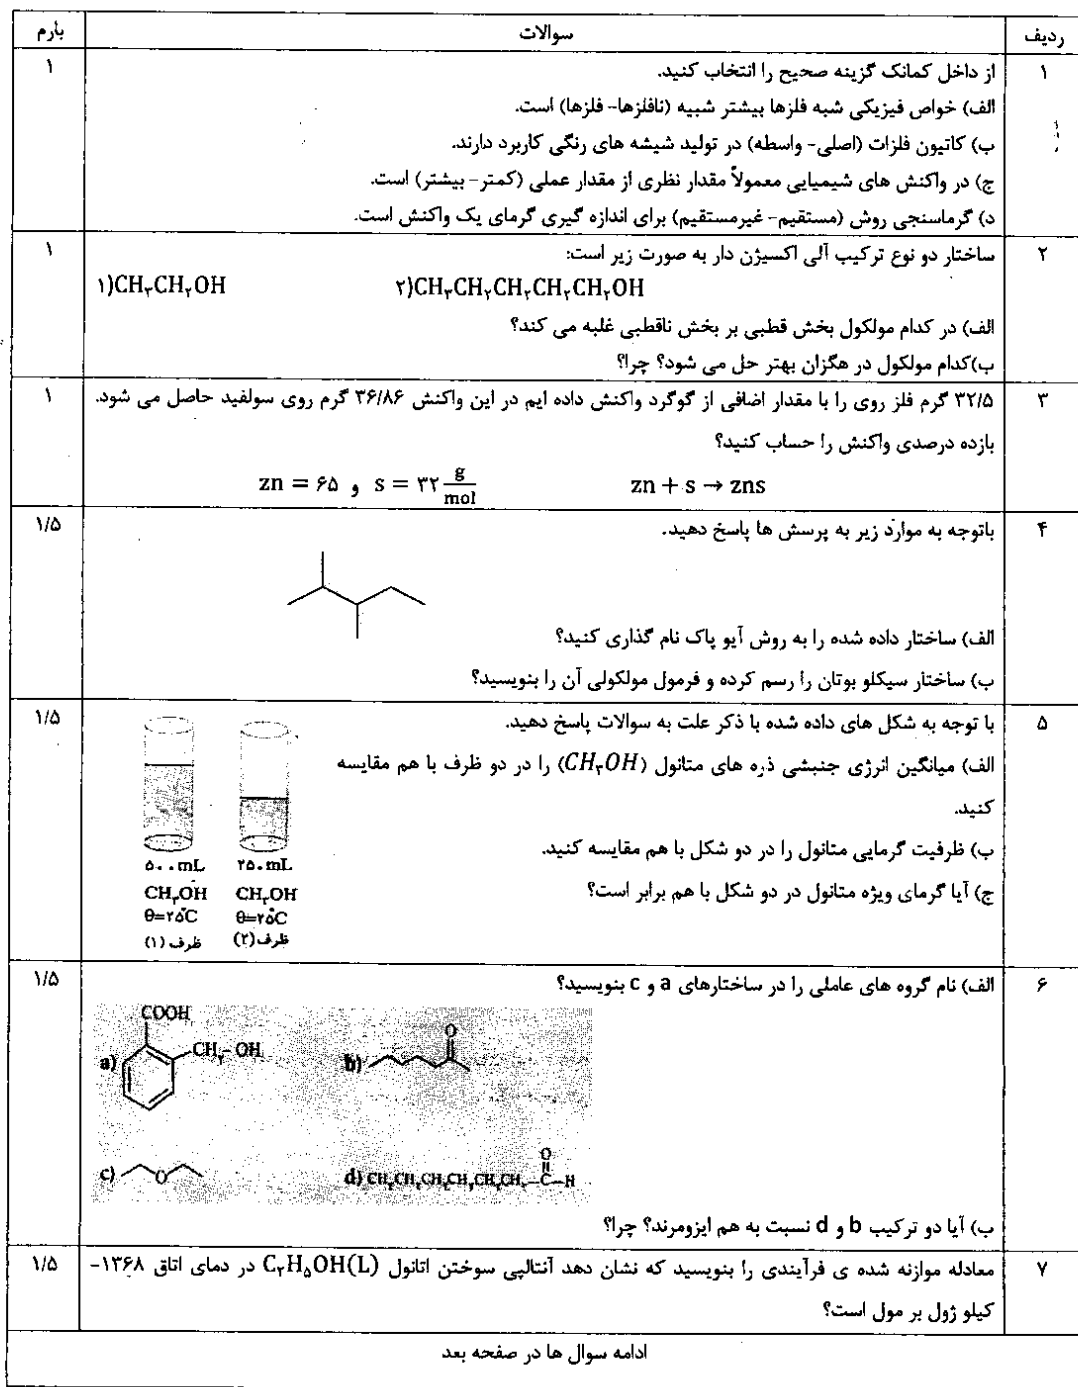 ردیف سوالات بارم
۱ از داخل کمانک گزینه صحیح را انتخاب کنید. ۱
الف) خواص فیزیکی شبه فلزها بیشتر شبیه (نافلزها- فلزها) است.
ب) کاتیون فلزات (اصلی- واسطه) در تولید شیشه های رنگی کاربرد دارند.
ج) در واکنش های شیمیایی معمولاً مقدار نظری از مقدار عملی (کمتر- بیشتر) است.
د) گرماسنجی روش (مستقیم- غیرمستقیم) برای اندازه گیری گرمای یک واکنش است.
۲ ساختار دو نوع ترکیب آلی اکسیژن دار به صورت زیر است: ۱
۱)CH₃CH₂OH ۲)CH₃CH₂CH₂CH₂CH₂OH
الف) در کدام مولکول بخش قطبی بر بخش ناقطبی غلبه می کند؟
ب)کدام مولکول در هگزان بهتر حل می شود؟ چرا؟
۳ ۳۲/۵ گرم فلز روی را با مقدار اضافی از گوگرد واکنش داده ایم در این واکنش ۳۶/۸۶ گرم روی سولفید حاصل می شود. ۱
بازده درصدی واکنش را حساب کنید؟
zn = ۶۵ و s = ۳۲ g/mol zn + s → zns
۴ باتوجه به موارد زیر به پرسش ها پاسخ دهید. ۱/۵
الف) ساختار داده شده را به روش آیو پاک نام گذاری کنید؟
ب) ساختار سیکلو بوتان را رسم کرده و فرمول مولکولی آن را بنویسید؟
۵ با توجه به شکل های داده شده با ذکر علت به سوالات پاسخ دهید. ۱/۵
الف) میانگین انرژی جنبشی ذره های متانول (CH₃OH) را در دو ظرف با هم مقایسه
کنید.
ب) ظرفیت گرمایی متانول را در دو شکل با هم مقایسه کنید.
ج) آیا گرمای ویژه متانول در دو شکل با هم برابر است؟
۵۰۰mL ۲۵۰mL
CH₃OH CH₃OH
θ=۲۵°C θ=۲۵°C
ظرف (۱) ظرف(۲)
۶ الف) نام گروه های عاملی را در ساختارهای a و c بنویسید؟ ۱/۵
COOH
a) CH₂-OH b) O
c) O d) CH₃CH₂CH₂CH₂CH₂CH₂-C-H
O
ب) آیا دو ترکیب b و d نسبت به هم ایزومرند؟ چرا؟
۷ معادله موازنه شده ی فرآیندی را بنویسید که نشان دهد آنتالپی سوختن اتانول C₂H₅OH(L) در دمای اتاق ۱۳۶۸- ۱/۵
کیلو ژول بر مول است؟
ادامه سوال ها در صفحه بعد